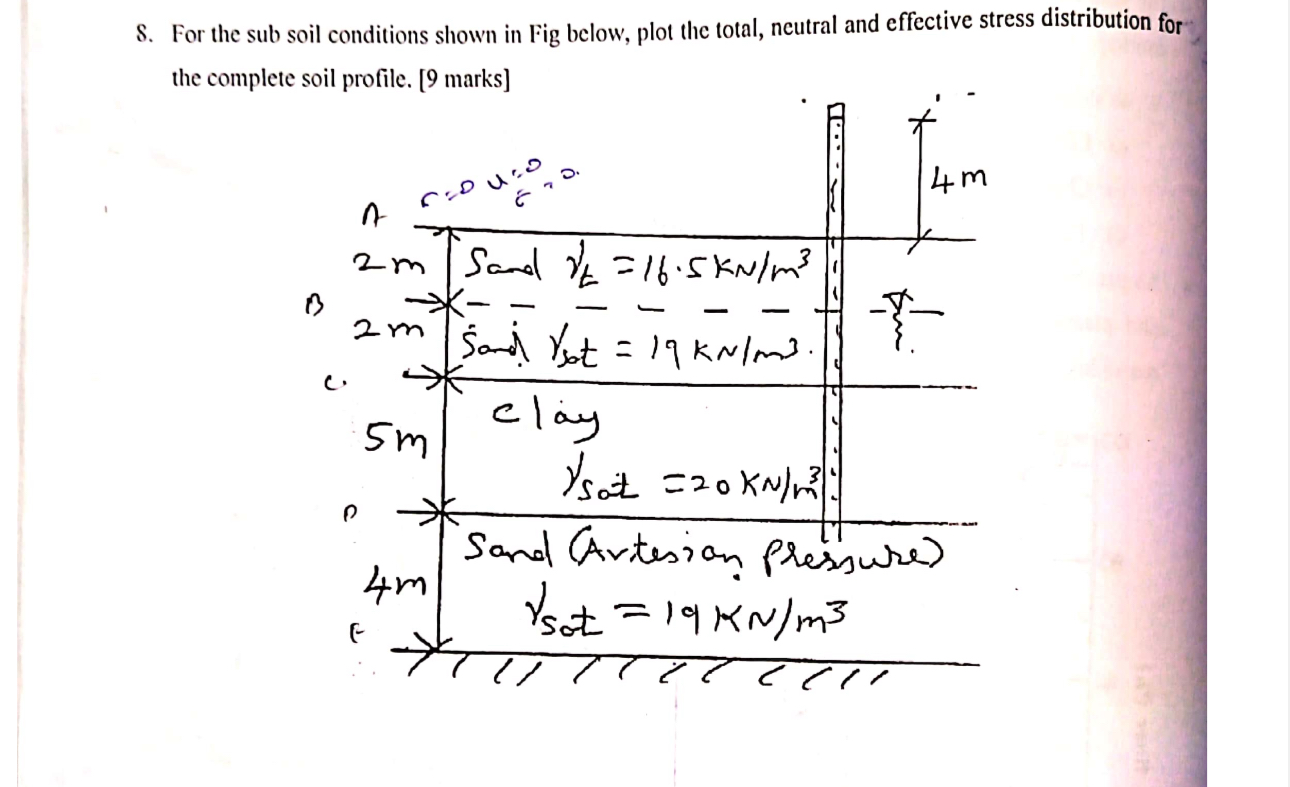 8. For the sub soil conditions shown in Fig below, plot the total, neutral and effective stress distribution for
the complete soil profile. [9 marks]
4m
σ=0 u=0
A
2m Sand γt = 16.5 KN/m³
B
2m Sand γsat = 19 KN/m³.
C.
clay
5m
γsat = 20 KN/m³
D
Sand (Artesian pressure)
4m
γsat = 19 KN/m3
E